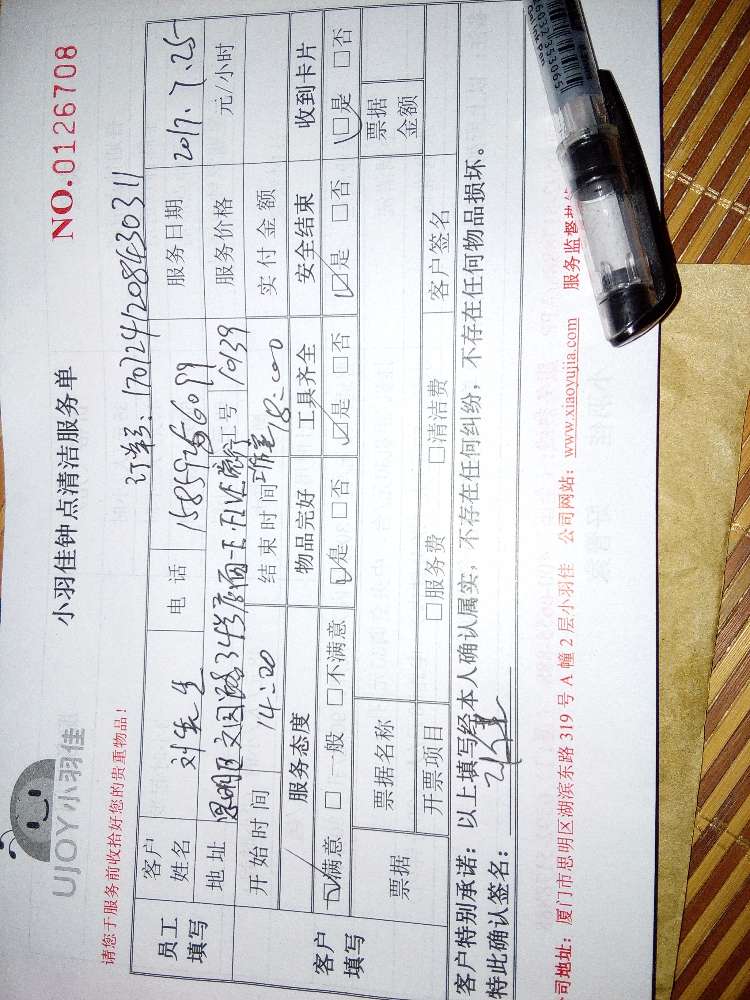 UJOY小羽佳
小羽佳钟点清洁服务单
NO.0126708
请您于服务前收拾好您的贵重物品！
订单号：1707241208430311
员工填写 客户姓名 刘先生 电话 15859256099 服务日期 2017.7.25
地址 思明区文园路34号店面一下.FLVE旅行 工号 10139 服务价格 元/小时
开始时间 14:00 结束时间 18:00 实付金额
客户填写 服务态度 物品完好 工具齐全 安全结束 收到卡片
☑满意 □一般 □不满意 ☑是 □否 ☑是 □否 ☑是 □否 ☑是 □否
票据 票据名称 票据金额
开票项目 □服务费 □清洁费 客户签名
客户特别承诺：以上填写经本人确认属实，不存在任何纠纷，不存在任何物品损坏。
特此确认签名：
公司地址：厦门市思明区湖滨东路 319 号 A 幢 2 层小羽佳 公司网站：www.xiaoyujia.com 服务监督